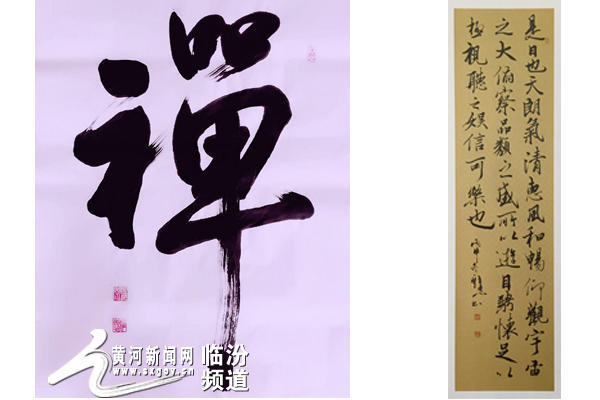 禪
是日也天朗氣清惠風和暢仰觀宇宙
之大俯察品類之盛所以遊目騁懷足以
極視聽之娛信可樂也
黄河新闻网
www.sxgov.cn
临汾
频道